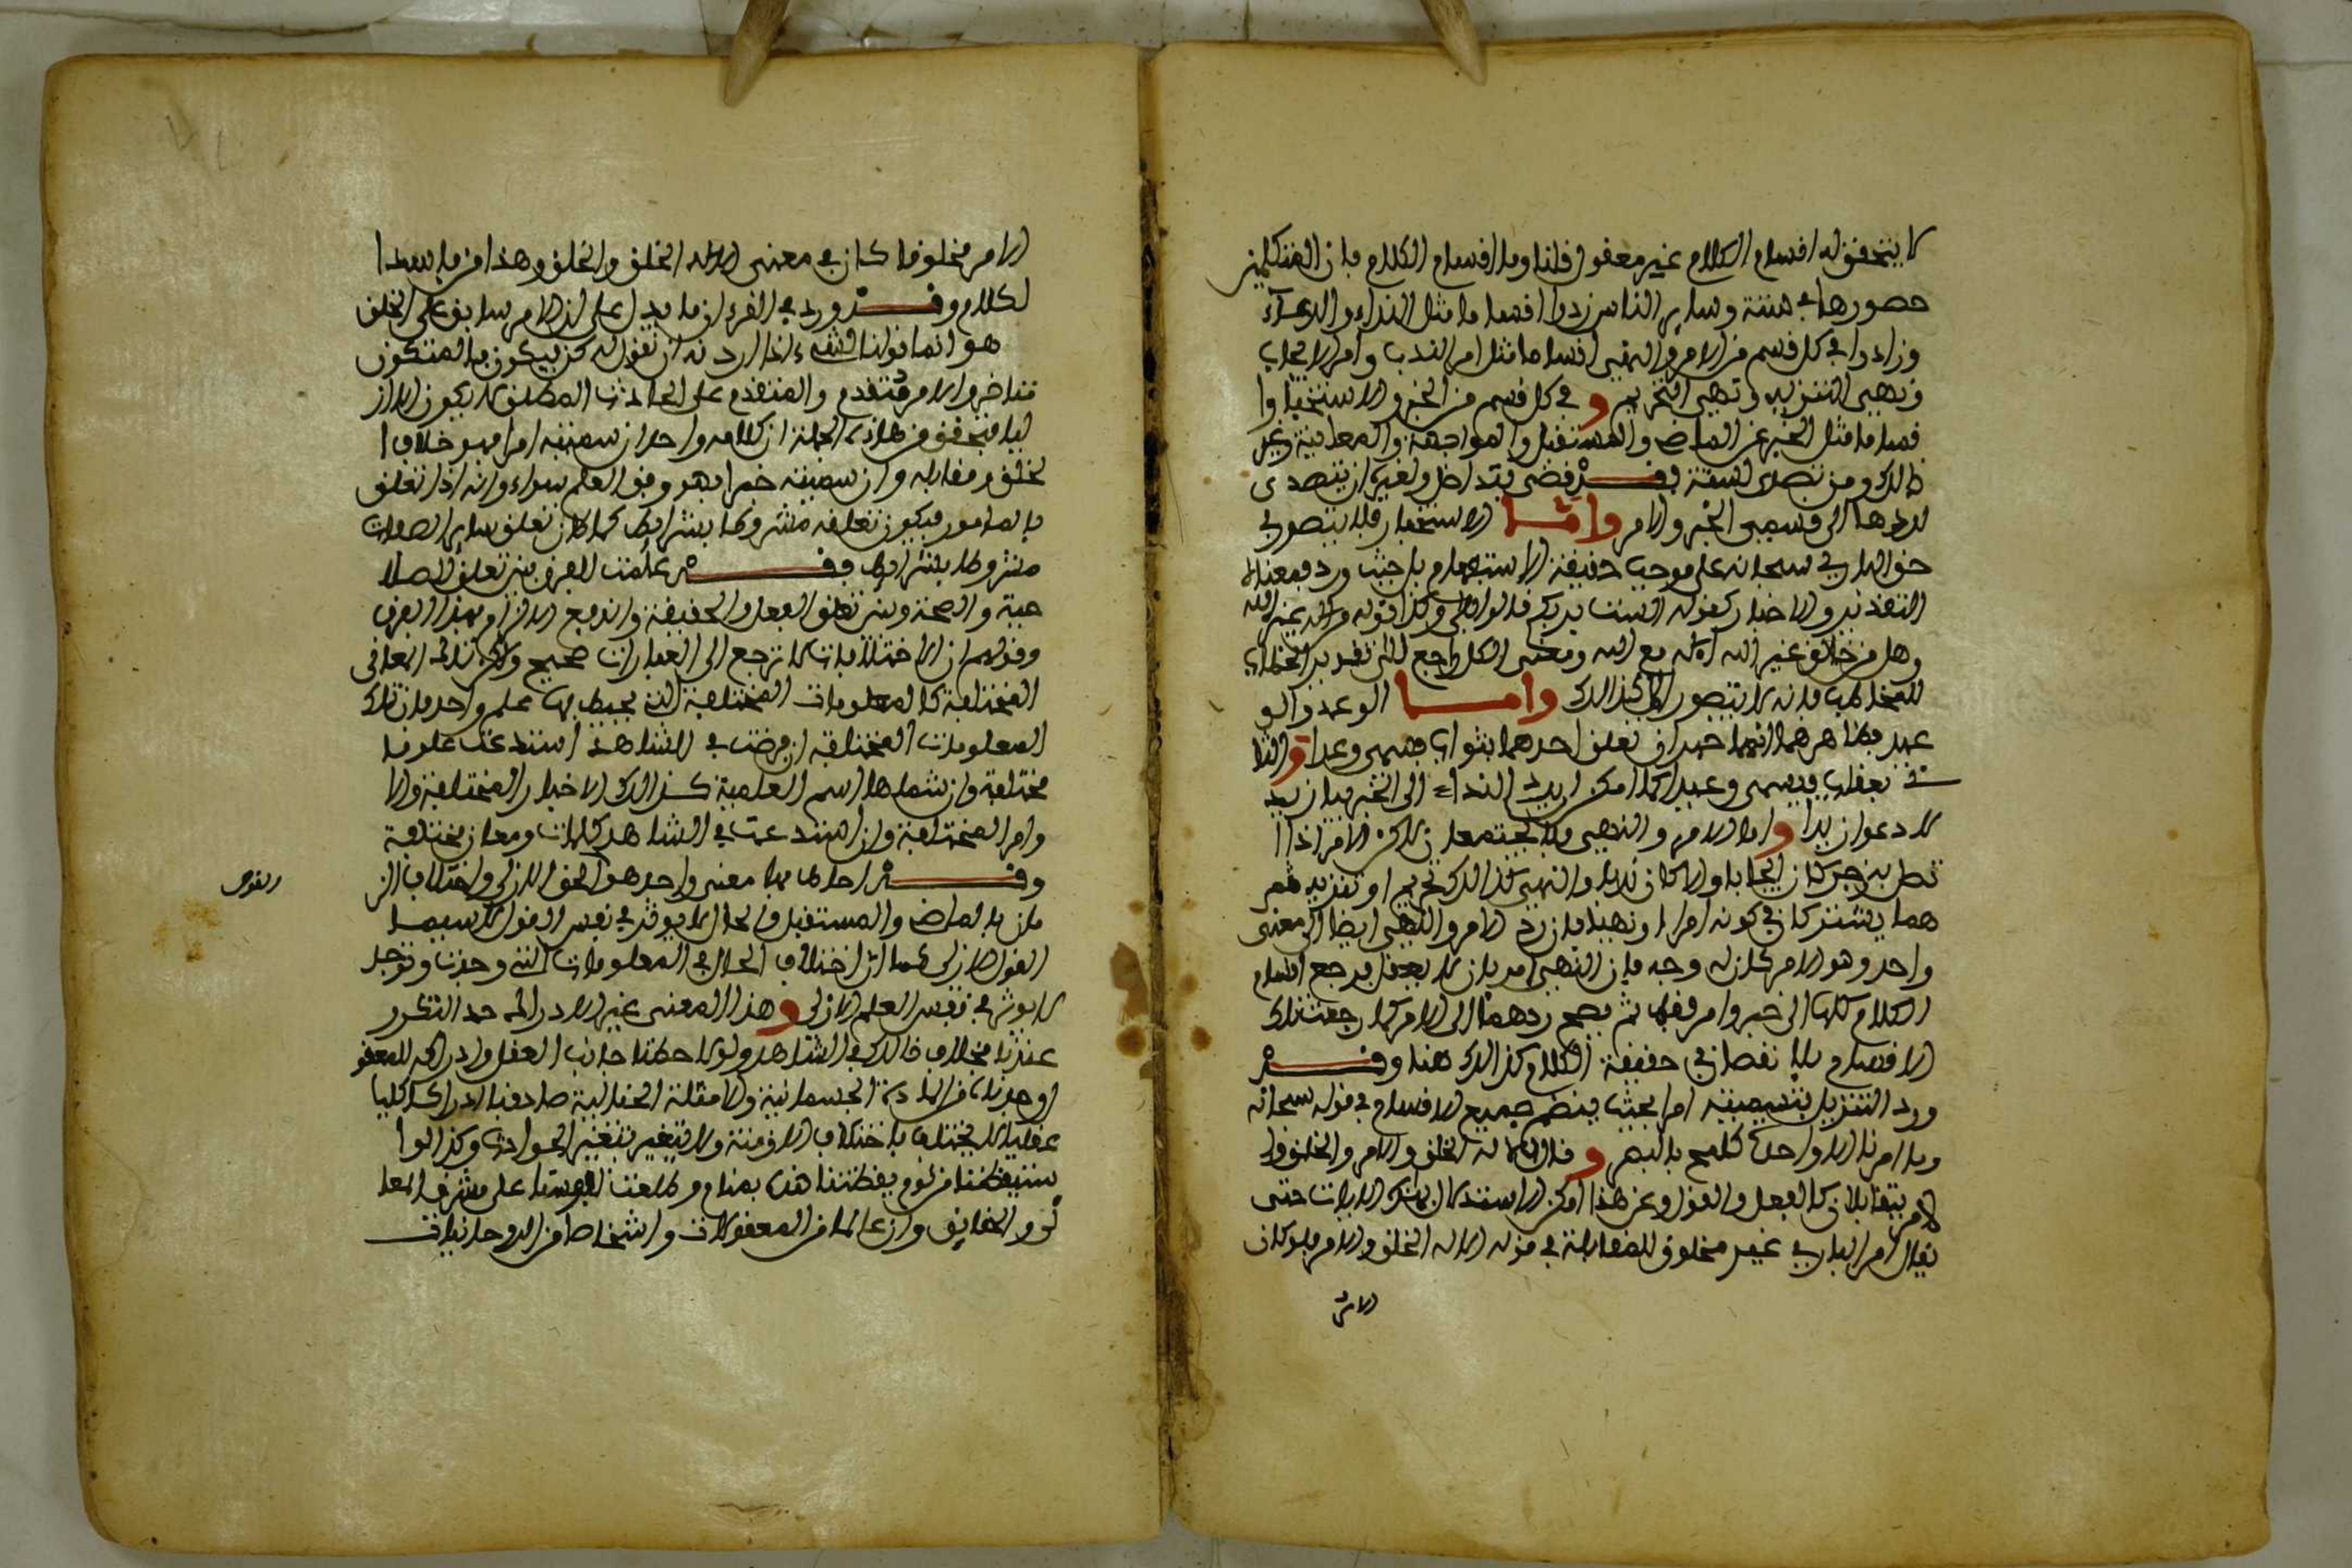 لا يتحقق له اقسام الكلام غير معقول قلنا وما اقسام الكلام فان المتكلمين
حصروها في ستة وساير الناس زادوا اقساما مثل النداء والدعاء
وزادوا في كل قسم من الامر والنهي اقساما مثل امر الندب وامر الايجاب
ونهي التنزيه ونهي التحريم و في كل قسم من الخبر والاستخبار ا
قساما مثل الخبر عن الماضي والمستقبل والمواجهة والمغايبة وغير
ذالك ومن تصدى لستة فقد قضى بتداخل ولغيره ان يتصدى
لردها الى قسمي الخبر والامر واما الاستخبار فلا يتصور في
حق الباري سبحانه على موجب حقيقة الاستفهام بل حيث ورد فمعناه
التقدير والاخبار كقوله الست بربكم قالوا بلى وكذا قوله من اله غير الله
وهل من خالق غير الله اءله مع الله ومعنى الكل راجع الى تقدير الخطاب
للمخاطب فانه لا يتصور الا كذالك واما الوعد والو
عيد فظاهر هما انهما خبران تعلق احدهما بثواب فسمي وعدا و الثا
ني بعقاب فسمي وعيدا كما امكن رد النداء الى الخبر فيا زيد
كادعوا زيدا و اما الامر والنهي فلا يجتمعان لاكن الامر اذا ا
تصل بزجر كان ايجابا والا كان ندبا والنهي كذالك تحريم او تنزيه ثم
هما يشتركان في كونه امرا ونهيا فان رد الامر والنهي ايضا الى معنى
واحد وهو الامر كان له وجه فان النهي امر بان لا يفعل فرجع اقسام
الكلام كلها الى خبر وامر فقط ثم يصح ردهما الى الامر كما رجعت تلك
الاقسام بلا نقصان في حقيقة الكلام كذالك هنا وقد
ورد التنزيل بتسميته امرا بحيث ينضم جميع الاقسام في قوله سبحانه
وما امرنا الا واحدة كلمح بالبصر و قال الا له الخلق والامر والخلق وا
لامر يتقابلان كالفعل والقول وعن هذا امكن الاستدلال بهذه الايات حتى
يقال امر الباري غير مخلوق للمقابلة في قوله الا له الخلق والامر فلو كان
الامر
الامر مخلوقا كان في معنى الا له الخلق والخلق وهذا من فاسد ا
لكلام وقد ورد في القرءان ما يدل على ان الامر سابق على الخلق
هو انما قولنا لشيء اذا اردنه ان نقول له كن فيكون فالمتكون
متاخر والامر متقدم والمتقدم على الحادث المطلق لا يكون الا از
ليا فتحقق من هاذه الجملة ان كلامه واحد ان سميته امرا فهو خلاف ا
لخلق ومقابله وان سميته خبرا فهو وفق العلم سواء وانه اذا تعلق
بالمامور فيكون تعلقه مشروطا بشرايط كما كان تعلق ساير الصفات
مشروطا بشرايط وقد علمت الفرق بين تعلق الصلا
حية والصحة وبين تعلق الفعل والحقيقة واندفع الالزام بهذا الفرق
وقولهم ان الاختلافات لا ترجع الى العبارات صحيح ولاكن تلك المعاني
المختلفة كالمعلومات المختلفة التي يحيط بها علم واحد فان تلك
المعلومات المختلفة ان فرضت في الشاهد استدعت علوما
مختلفة وان شملها اسم العلمية كذالك الاخبار المختلفة والا
وامر المختلفة وان استدعت في الشاهد كلمات ومعان مختلفة
وقد احاط بها معنى واحد هو الحق الازلي واختلاف الز
مان بالماضي والمستقبل والحال لا يوثر في نفس القول لا سيما
القول الازلي كما ان اختلاف الحال في المعلومات التي وجدت وتوجد
لا يوثر في نفس العلم الازلي و هذا المعنى غير الادراك حد التكرر
عندنا بخلاف ذالك في الشاهد ولولا حظنا جانب العقل وادراكه للمعقو
لات من المادة الجسمانية والامثلة الخيالية صادفنا ادراكا كليا
عقليا لا يختلف باختلاف الازمنة ولا يتغير بتغير الحوادث وكذا لو ا
ستيقظنا من نوم يقظتنا هذه بمنام وطلعت نفوسنا على مشرق المعا
ني والحقايق وان عالما من المعقولات واشخاصا من الروحانيات